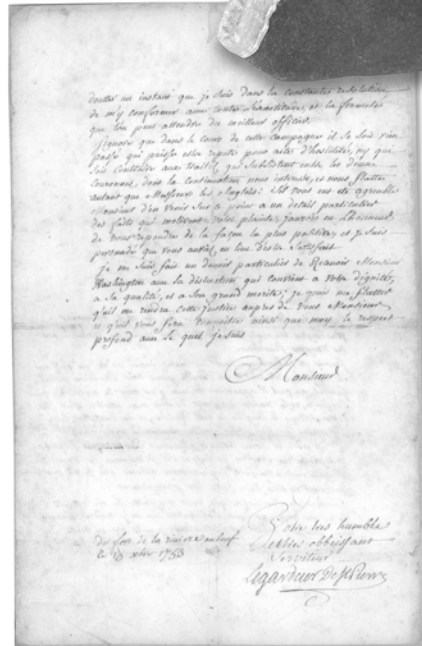 douter un instant que je suis dans la constante resolution
de m'y conformer avec toute l'exactitude, et la fermeté
que l'on peut attendre du meilleur officier.
J'ignore que dans le cours de cette campagne il se soit rien
passé qui puisse estre reputé pour acte d'hostilité, ny qui
soit contraire aux traités qui subsistent entre les deux
Couronnes, dont la continuation nous interesse, et nous flatte
autant que Messieurs les Anglois: s'il vous eut été agreable
Monsieur d'en venir sur ce point a un detail particulier
des faits qui motivent votre plainte, j'aurois eu l'honneur
de vous repondre de la façon la plus positive, et je suis
persuadé que vous auriés eu lieu d'estre satisfait
Je me suis fait un devoir particulier de Recevoir Monsieur
Washington avec la distinction qui convient a votre dignité,
a sa qualité, et a son grand merite; je puis me flatter
qu'il me rendra cette justice aupres de vous Monsieur,
et qu'il vous fera connoitre ainsi que moy le respect
profond avec le quel je suis
Monsieur
Votre tres humble
et tres obbeissant
Serviteur
Legardeur De St Pierre
du fort de la riviere au beuf
le 15 xbre 1753